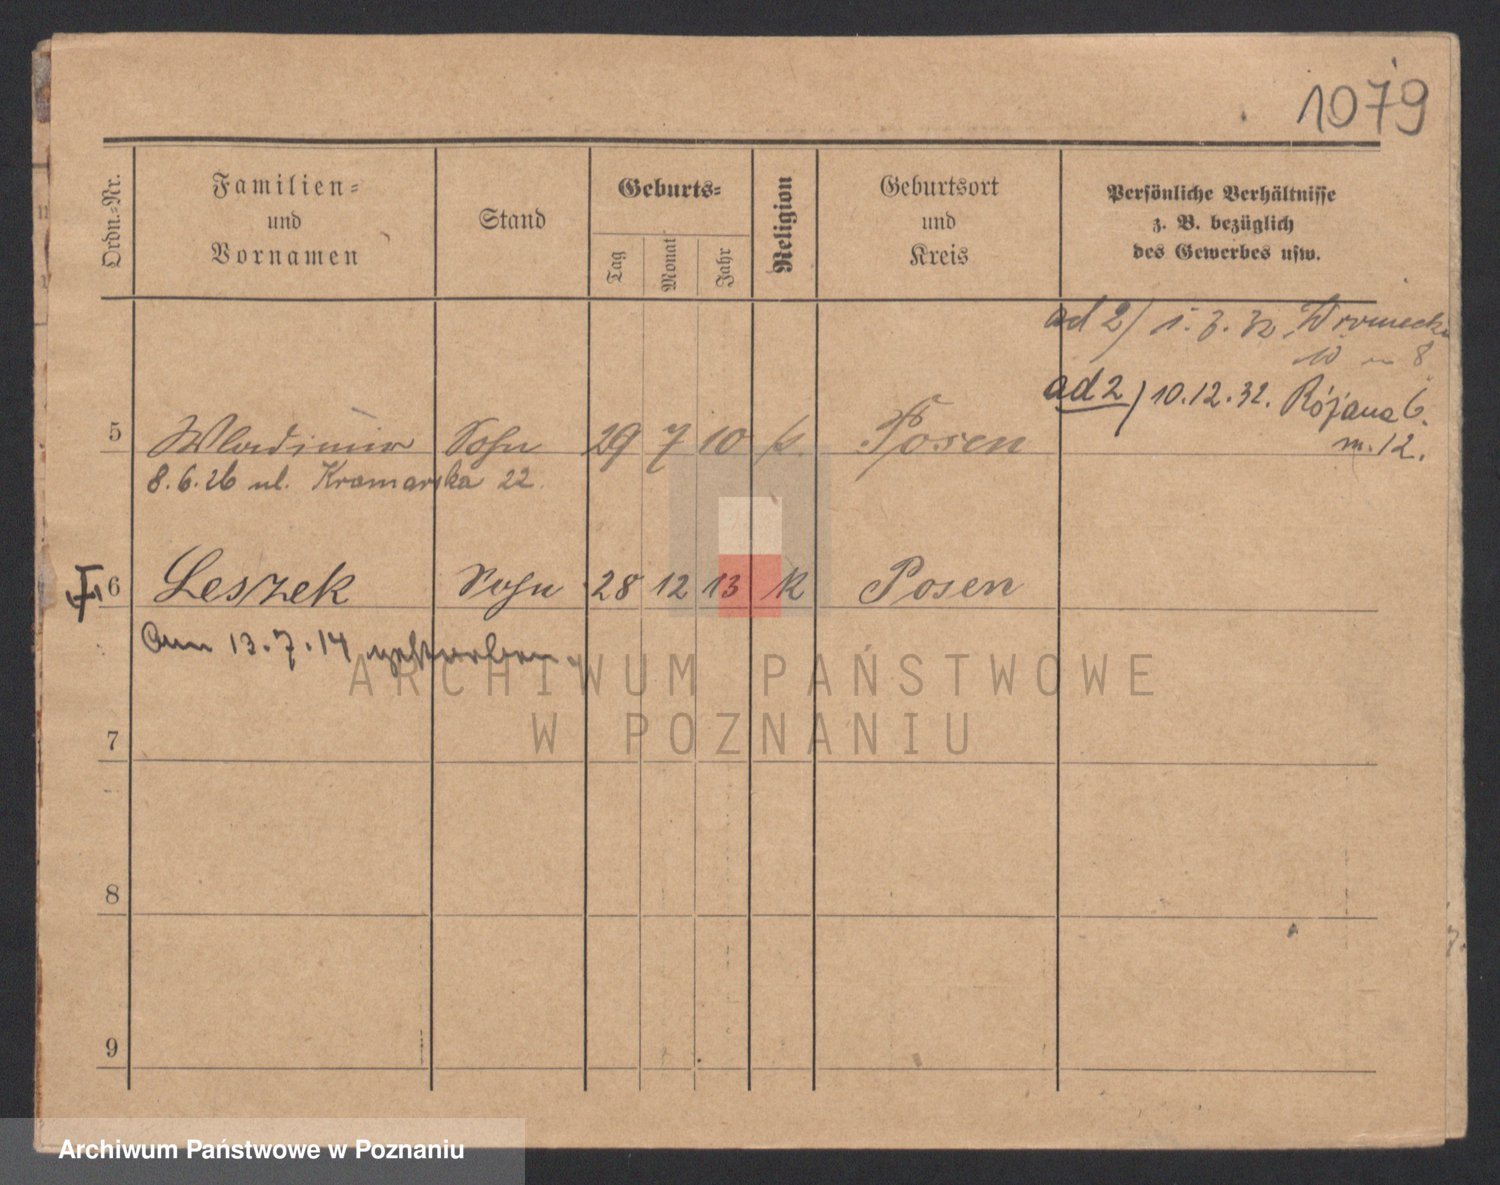 1079
Ordn.-Nr.
Familien-
und
Vornamen
Stand
Geburts-
Tag
Monat
Jahr
Religion
Geburtsort
und
Kreis
Persönliche Verhältnisse
z. B. bezüglich
des Gewerbes usw.
ad 2) 1.3.32
10 m 8
ad 2) 10.12.32. Różana 6.
m. 12.
5 Wladimir Sohn 29 7 10 k. Posen
8.6.26 ul. Kramarska 22.
6 Leszek Sohn 28 12 13 k Posen
Am 13.7.14 gestorben.
7
8
9
ARCHIWUM PAŃSTWOWE
W POZNANIU
Archiwum Państwowe w Poznaniu